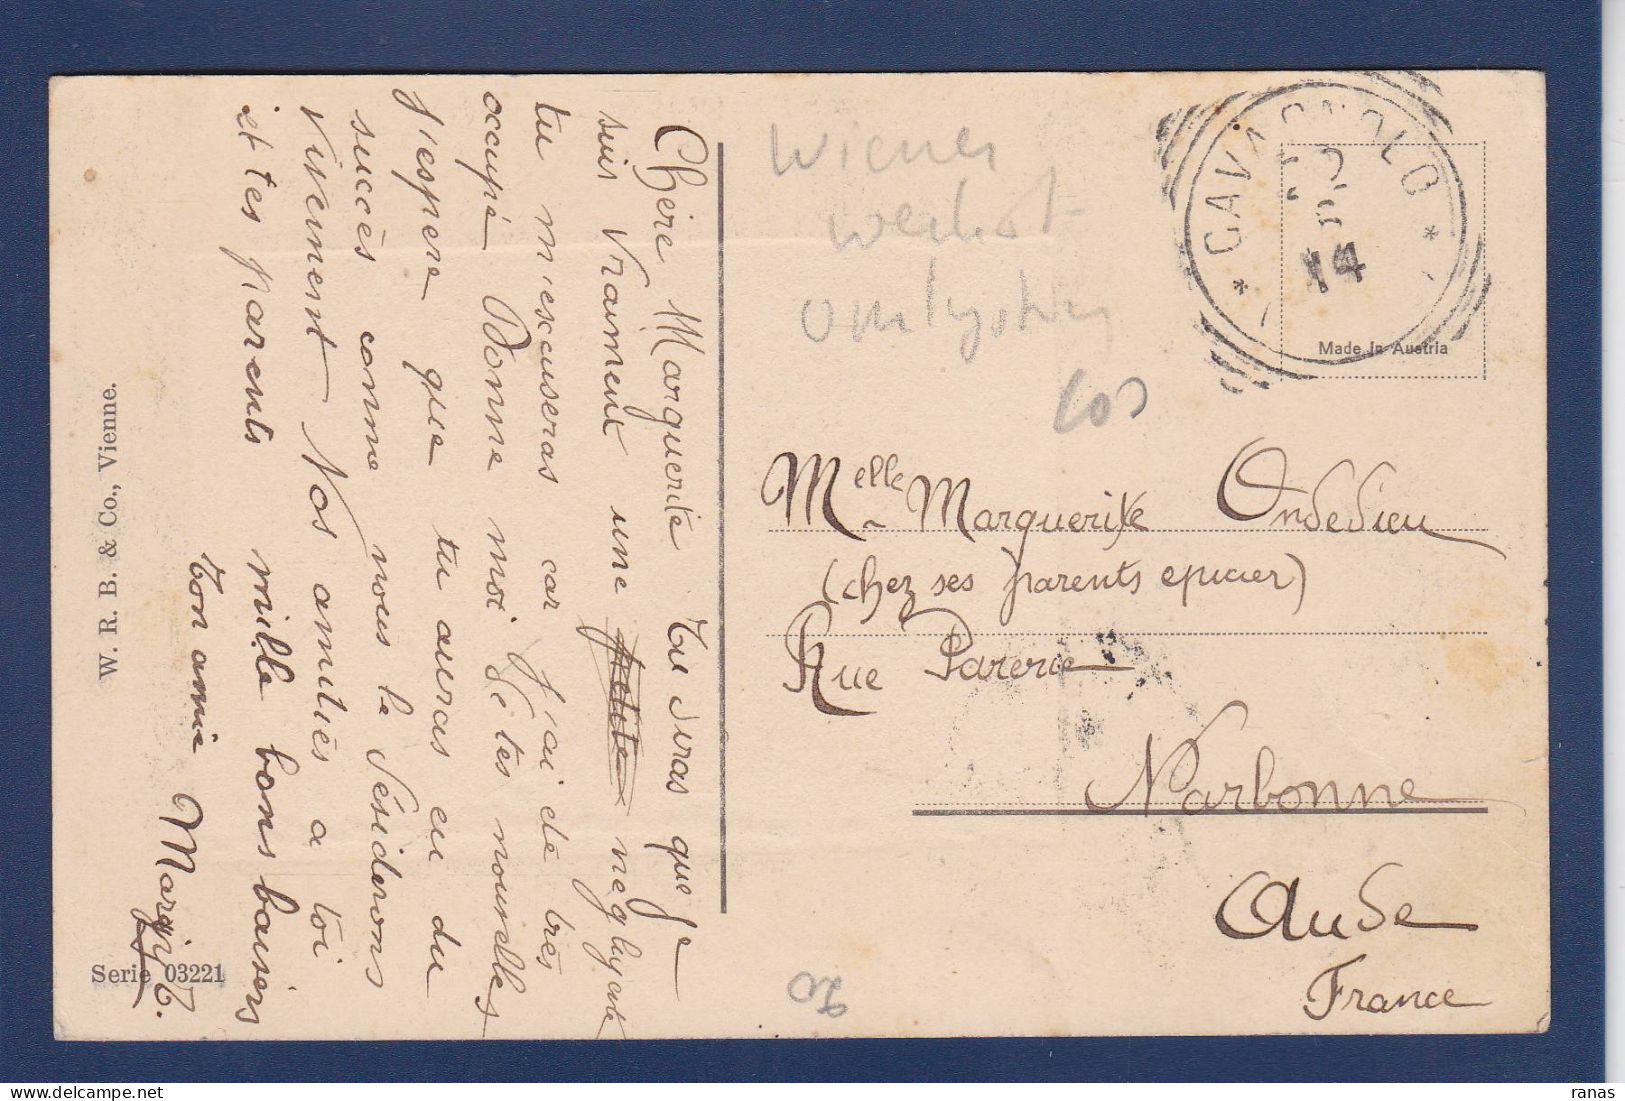 Chère Marguerite Tu diras que je
suis vraiment une petite negligente
tu m'escuseras car j'ai été très
occupé Donne moi de tes nouvelles
J'espere que tu auras eu du
succès comme nous le désiderons
vivement Nos amitiés a toi
et tes parents mille bons baisers
ton amie Margit.
W. R. B. & Co., Vienne.
Serie 03221
Wiener
* CAVAGNOLO *
14
Made in Austria
Melle Marguerite Ondedieu
(chez ses parents epicier)
Rue Parerie
Narbonne
Aude
France
20
ranas